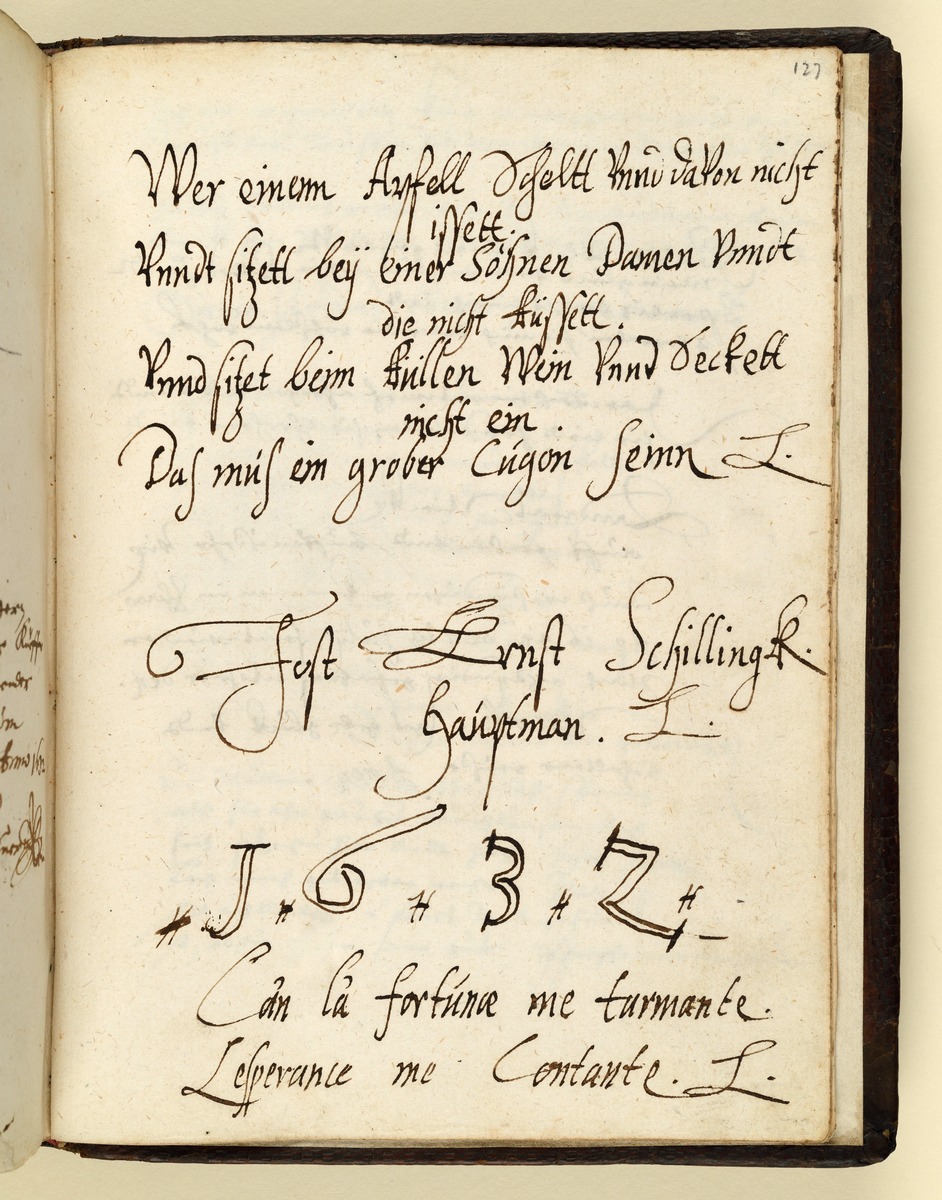 127
Wer einenn Apfell Scheltt Vnnd daVon nicht
issett.
Vnndt sitzett beÿ einer Söhnen Damen Vnndt
die nicht küssett.
Vnnd sitzet beim küllen Wein Vnnd Seckett
nicht ein.
Das mus ein grober Cúgon seinn L.
Jost Ernst Schillingk.
Haúptman. L.
1632
Can la fortúnæ me turmante.
Lesperance me Contante. L.